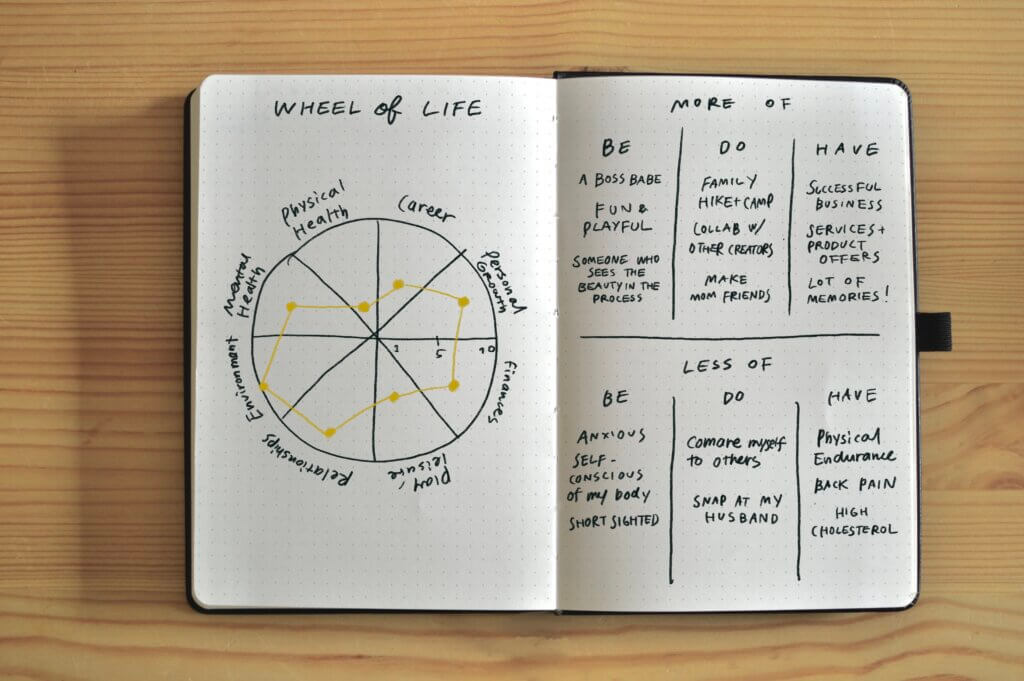 WHEEL of LIFE
Physical
Health
Career
Personal
Growth
Finances
Play/
leisure
Relationships
Environment
Mental
Health
5
10
MORE OF
BE
A BOSS BABE
FUN &
PLAYFUL
SOMEONE WHO
SEES THE
BEAUTY IN THE
PROCESS
DO
FAMILY
HIKE + CAMP
COLLAB W/
OTHER CREATORS
MAKE
MOM FRIENDS
HAVE
SUCCESSFUL
BUSINESS
SERVICES +
PRODUCT
OFFERS
LOT OF
MEMORIES!
LESS OF
BE
ANXIOUS
SELF-
CONSCIOUS
of my body
SHORT SIGHTED
DO
Comare myself
to others
SNAP AT MY
HUSBAND
HAVE
Physical
Endurance
BACK PAIN
HIGH
CHOLESTEROL